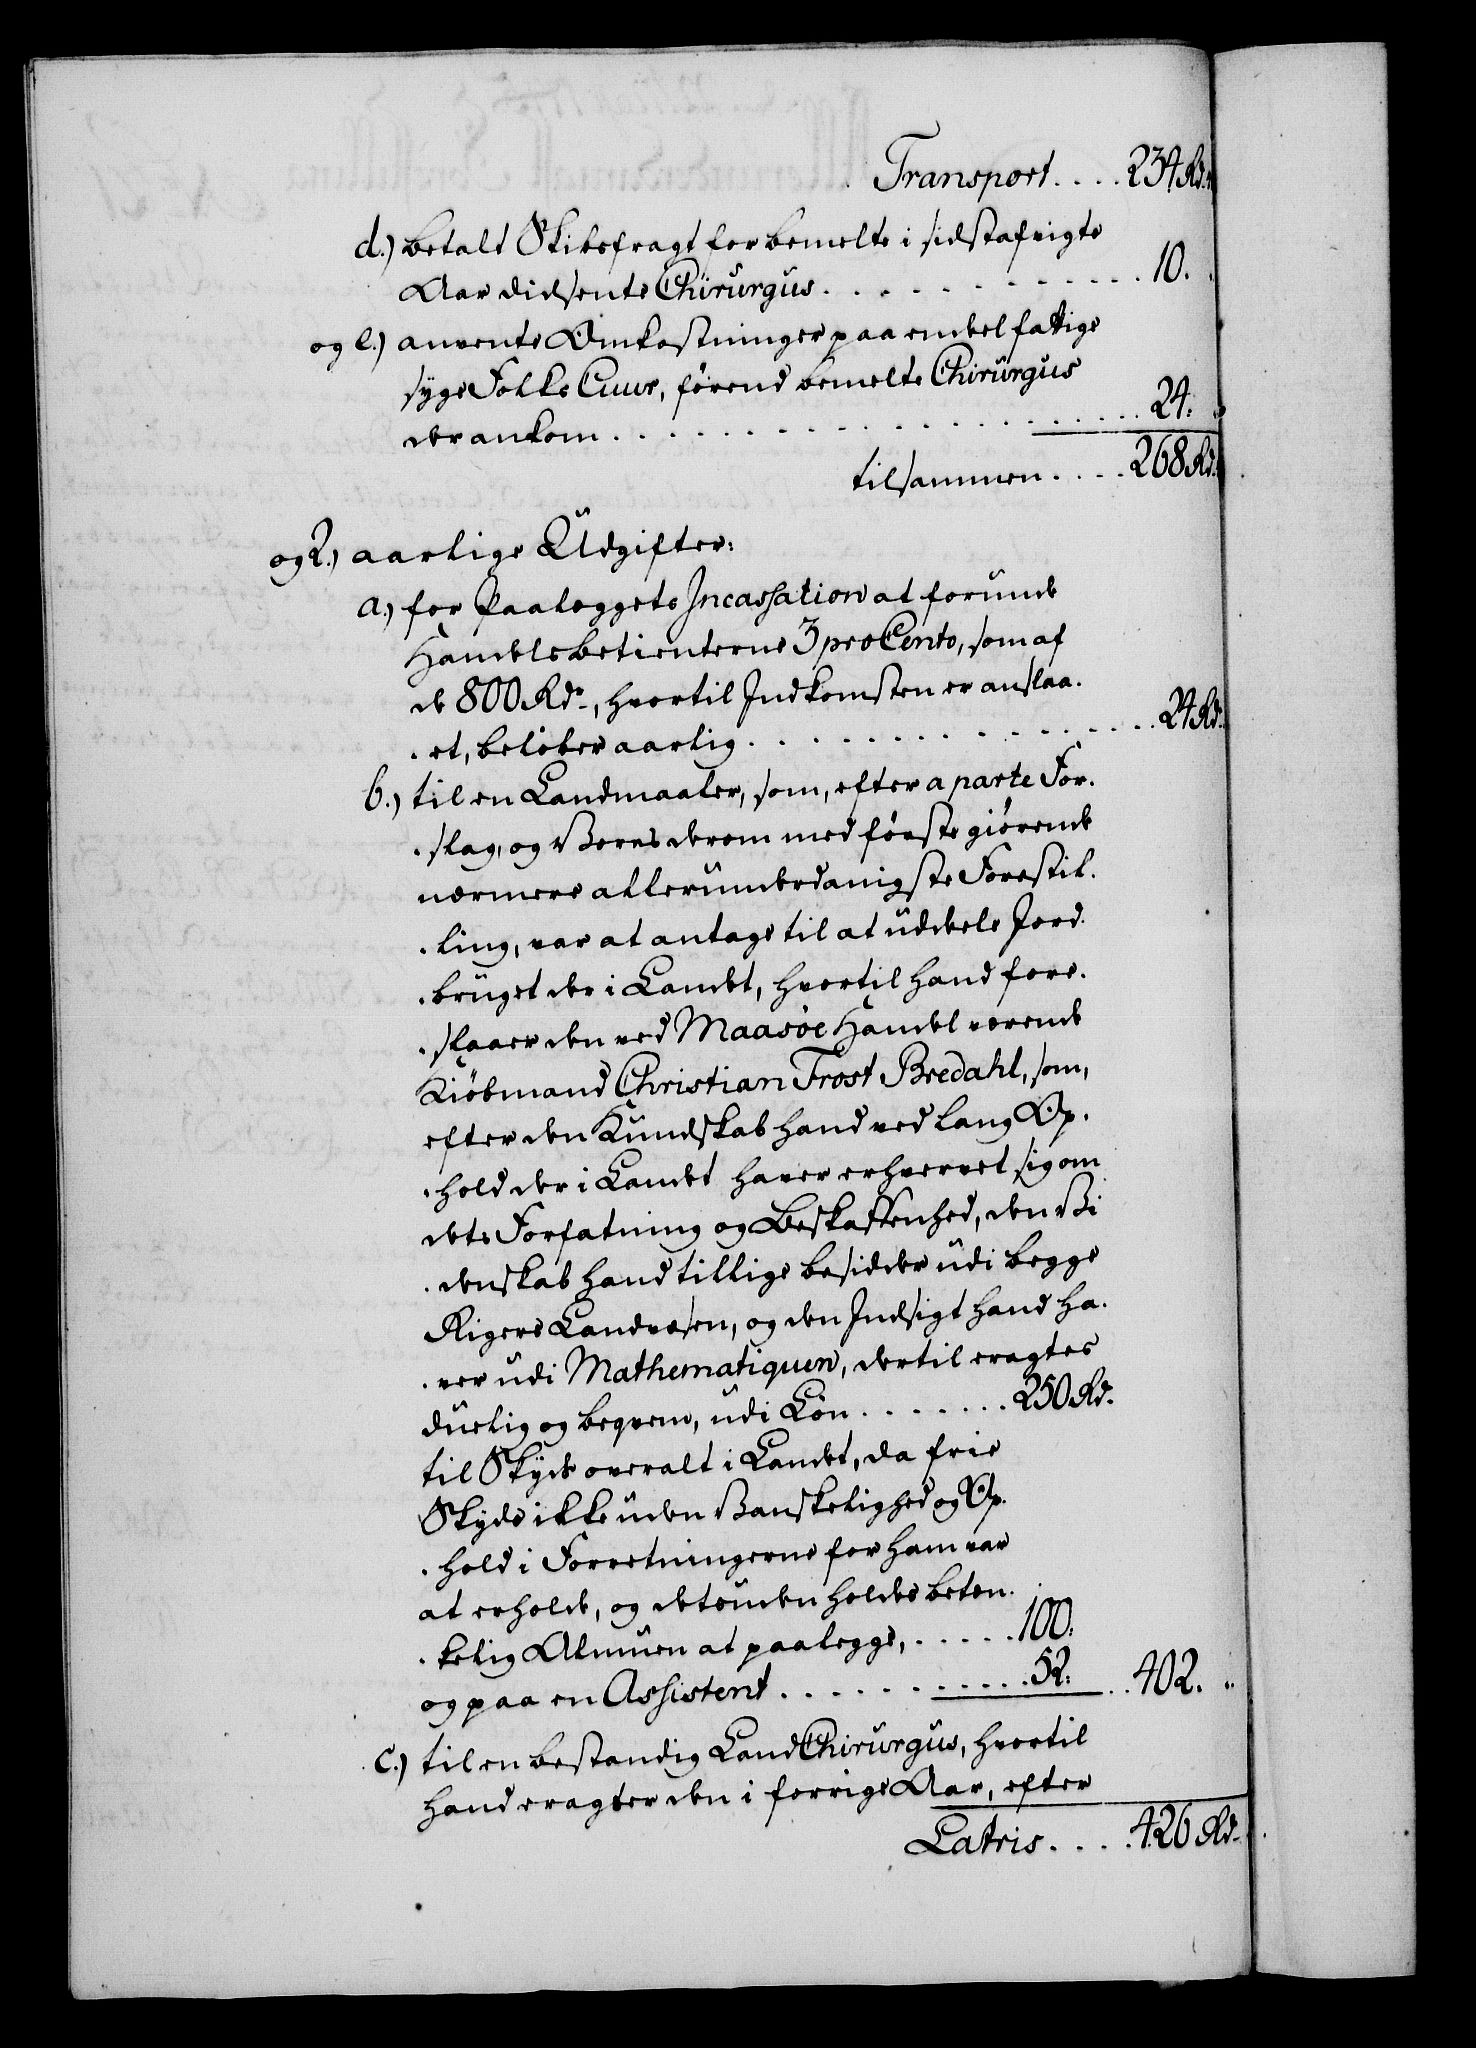 Transport....234 Rd.
d.) betalt Skibsfragt for bemelte i sidstafvigte
Aar didsente Chirurgus............10.
og e.) anvente Omkostninger paa endeel fattige
syge Folks Cuur, førend bemelte Chirurgus
der ankom....................24.
tilsammen....268 Rd.
og 2.) aarlige Udgifter:
a.) for Paaleggets Incassation at forunde
Handelsbetienterne 3 pro Cento, som af
de 800 Rdr., hvortil Indkomsten er anslaa-
et, beløber aarlig................24 Rd.
b.) til en Landmaaler, som, efter a parte For-
slag, og Vores derom med første giørende
nærmere allerunderdanigste Forestil-
ling, var at antage til at uddeele Jord-
bruget der i Landet, hvortil hand fore-
slaaer den ved Maasøe Handel værende
Kiøbmand Christian Frost Bredahl, som,
efter den Kundskab hand ved lang Op-
hold der i Landet haver erhvervet sig om
dets Forfatning og Beskaffenhed, den Vi-
denskab hand tillige besidder udi begge
Rigers Landvæsen, og den Indsigt hand ha-
ver udi Mathematiquen, dertil eragtes
duelig og beqvem, udi Løn.......250 Rd.
til Skyds overalt i Landet, da frie
Skyds ikke uden Vanskelighed og Op-
hold i Forretningerne for ham var
at erholde, og desuden holdes beten-
kelig Almuen at paalegge,......100.
og paa en Assistent............52...402.
c.) til en bestandig Land Chirurgus, hvortil
hand eragter den i forrige Aar, efter
Latris....426 Rd.